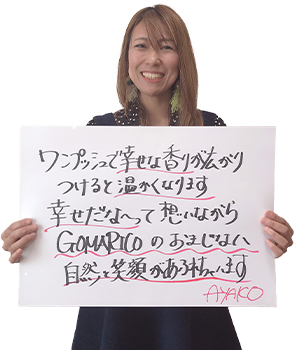 ワンプッシュで幸せな香りが広がり
つけると温かくなります
幸せだなへって想いながら
GOMARICOのおまじない
自然と笑顔があふれちゃいます
AYAKO